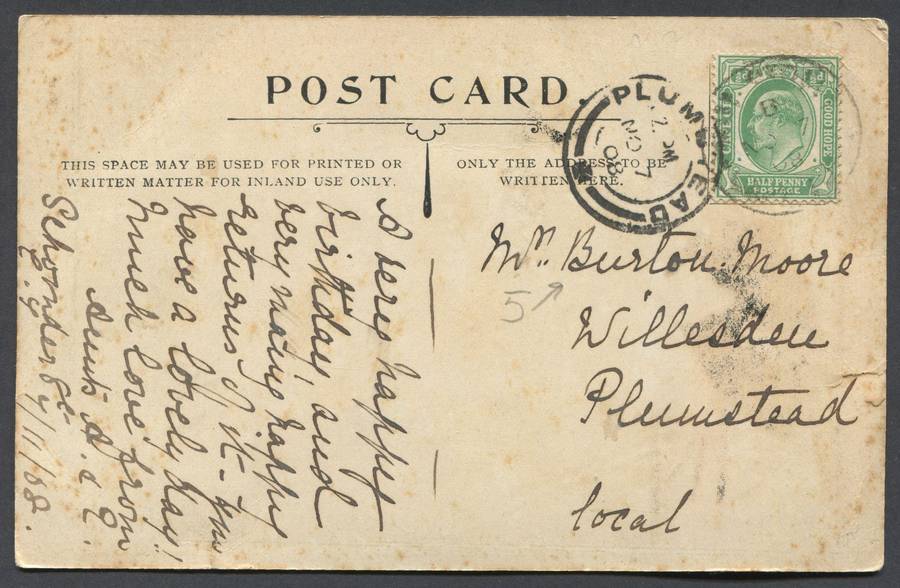 POST CARD.
THIS SPACE MAY BE USED FOR PRINTED OR
WRITTEN MATTER FOR INLAND USE ONLY.
ONLY THE ADDRESS TO BE
WRITTEN HERE.
PLUMSTEAD
NO 7
08
GOOD HOPE
HALFPENNY
POSTAGE
Mrs Burton Moore
5
Willesden
Plumstead
local
A very happy
birthday, and
very many happy
returns of it -
have a lovely day!
Much love from
Aunts A. &
7/11/08.